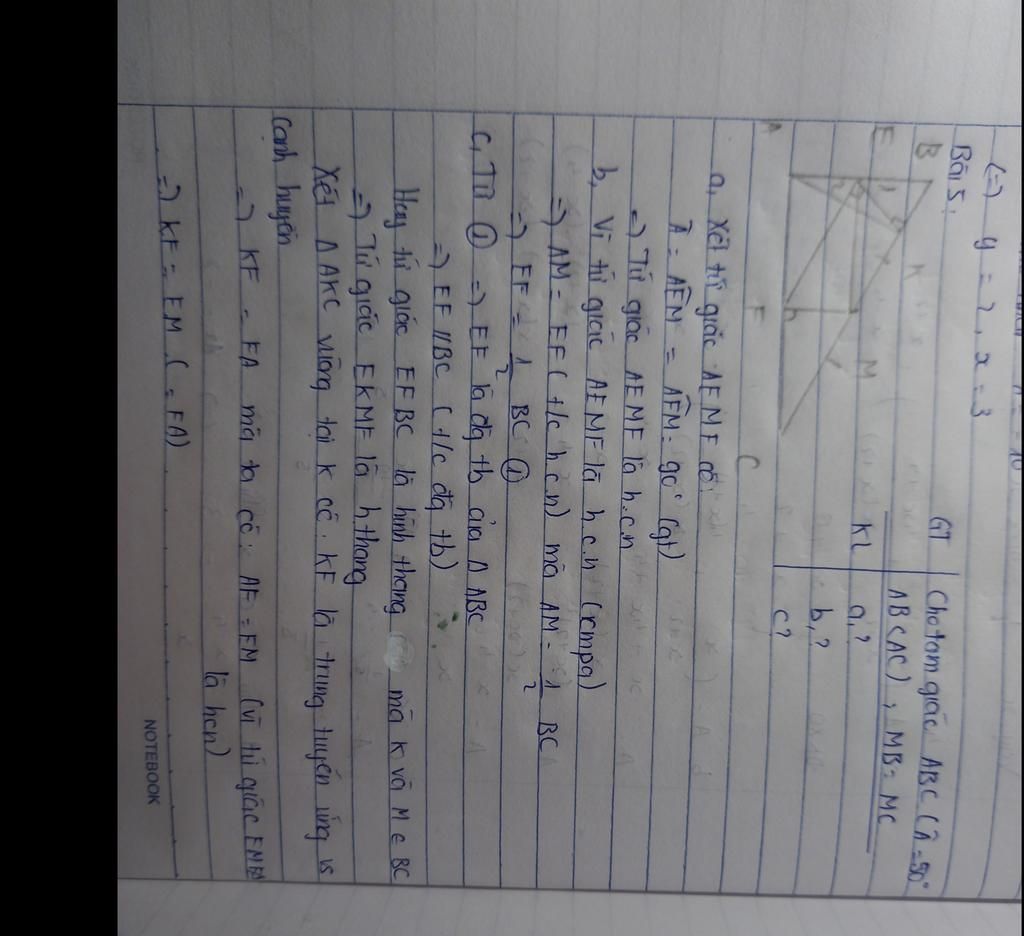 (=) y = 2, x = 3
Bài 5:
GT | Cho tam giác ABC (Â = 90°
AB<AC), MB = MC
KL | a,?
b,?
c?
B
K
E
M
A
F
C
a, Xét tứ giác AEMF có:
Â = AÊM = AF̂M = 90° (gt)
=) Tứ giác AEMF là h.c.n
b, Vì tứ giác AEMF là h.c.n (cmpa)
=) AM = EF (t/c h.c.n) mà AM = 1/2 BC
=) EF = 1/2 BC ①
c, Từ ① =) EF là đg tb của Δ ABC
=) EF // BC (t/c đg tb)
Hay tứ giác EFBC là hình thang mà K và M ∈ BC
=) Tứ giác EKMF là h.thang
Xét Δ AKC vuông tại K có: KF là trung tuyến ứng vs
cạnh huyền
=) KF = FA mà ta có: AF = EM (vì tứ giác EMFA
là hcn)
=) KF = EM (= FA)
NOTEBOOK